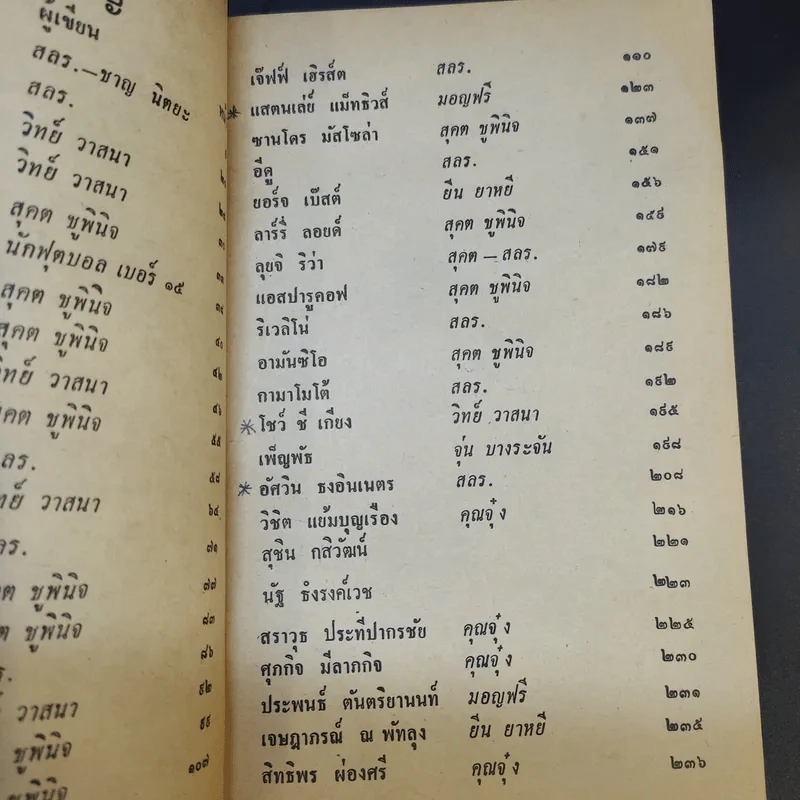 ผู้เขียน
สลร.—ชาญ นิตยะ
สลร.
วิทย์ วาสนา
วิทย์ วาสนา
สุคต ชูพินิจ
นักฟุตบอล เบอร์ ๑๕
สุคต ชูพินิจ
สุคต ชูพินิจ ๔๐
วิทย์ วาสนา ๔๒
สุคต ชูพินิจ ๔๖
สลร. ๕๕
วิทย์ วาสนา ๕๘
สลร. ๖๔
๗๑
สุคต ชูพินิจ ๗๗
สุคต ชูพินิจ ๘๓
สลร. ๘๖
วิทย์ วาสนา ๙๒
ชูพินิจ ๙๙
ชูพินิจ ๑๐๗
เจ๊ฟฟ์ เฮิรส์ต สลร. ๑๑๐
* แสตนเล่ย์ แม็ทธิวส์ มอญฟรี ๑๒๓
ซานโดร มัสโซล่า สุคต ชูพินิจ ๑๓๗
อีดู สลร. ๑๕๑
ยอร์จ เบ๊สต์ ยีน ยาหยี ๑๕๖
ลาร์รี่ ลอยด์ สุคต ชูพินิจ ๑๕๙
ลุยจิ ริว่า สุคต — สลร. ๑๗๙
แอสปารูคอฟ สุคต ชูพินิจ ๑๘๒
ริเวลิโน่ สลร. ๑๘๖
อามันซิโอ สุคต ชูพินิจ ๑๘๙
กามาโมโต้ สลร. ๑๙๒
* โชว์ ชี เกียง วิทย์ วาสนา ๑๙๕
เพ็ญพัธ จุ่น บางระจัน ๑๙๘
* อัศวิน ธงอินเนตร สลร. ๒๐๘
วิชิต แย้มบุญเรือง คุณจุ๋ง ๒๑๖
สุชิน กสิวัฒน์ ๒๒๑
นัฐ ธังรงค์เวช ๒๒๓
สราวุธ ประทีปากรชัย คุณจุ๋ง ๒๒๕
ศุภกิจ มีลาภกิจ คุณจุ๋ง ๒๓๐
ประพนธ์ ตันตริยานนท์ มอญฟรี ๒๓๑
เจษฎาภรณ์ ณ พัทลุง ยีน ยาหยี ๒๓๕
สิทธิพร ผ่องศรี คุณจุ๋ง ๒๓๖